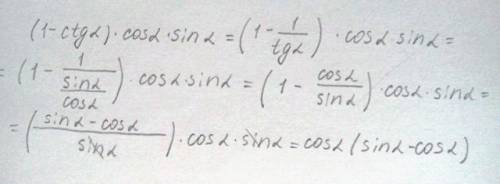 (1-ctgα)·cosα·sinα = (1 - 1/tgα) · cosα·sinα =
= (1 - 1/(sinα/cosα)) · cosα·sinα = (1 - cosα/sinα)·cosα·sinα =
= ((sinα-cosα)/sinα)·cosα·sinα = cosα(sinα-cosα)